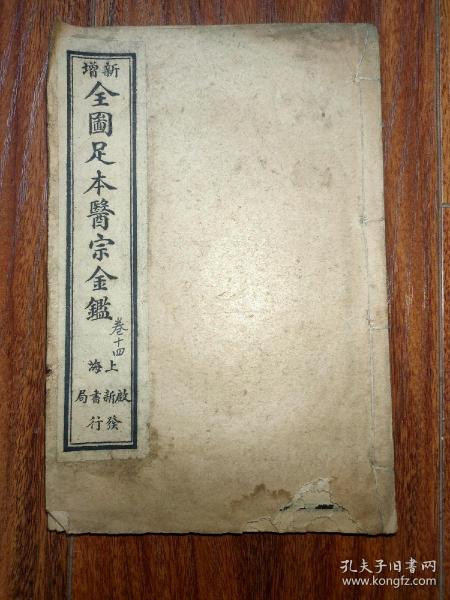 新增
全圖足本醫宗金鑑
卷十四
上海
啟新書局
發行
孔夫子旧书网
www.kongfz.com